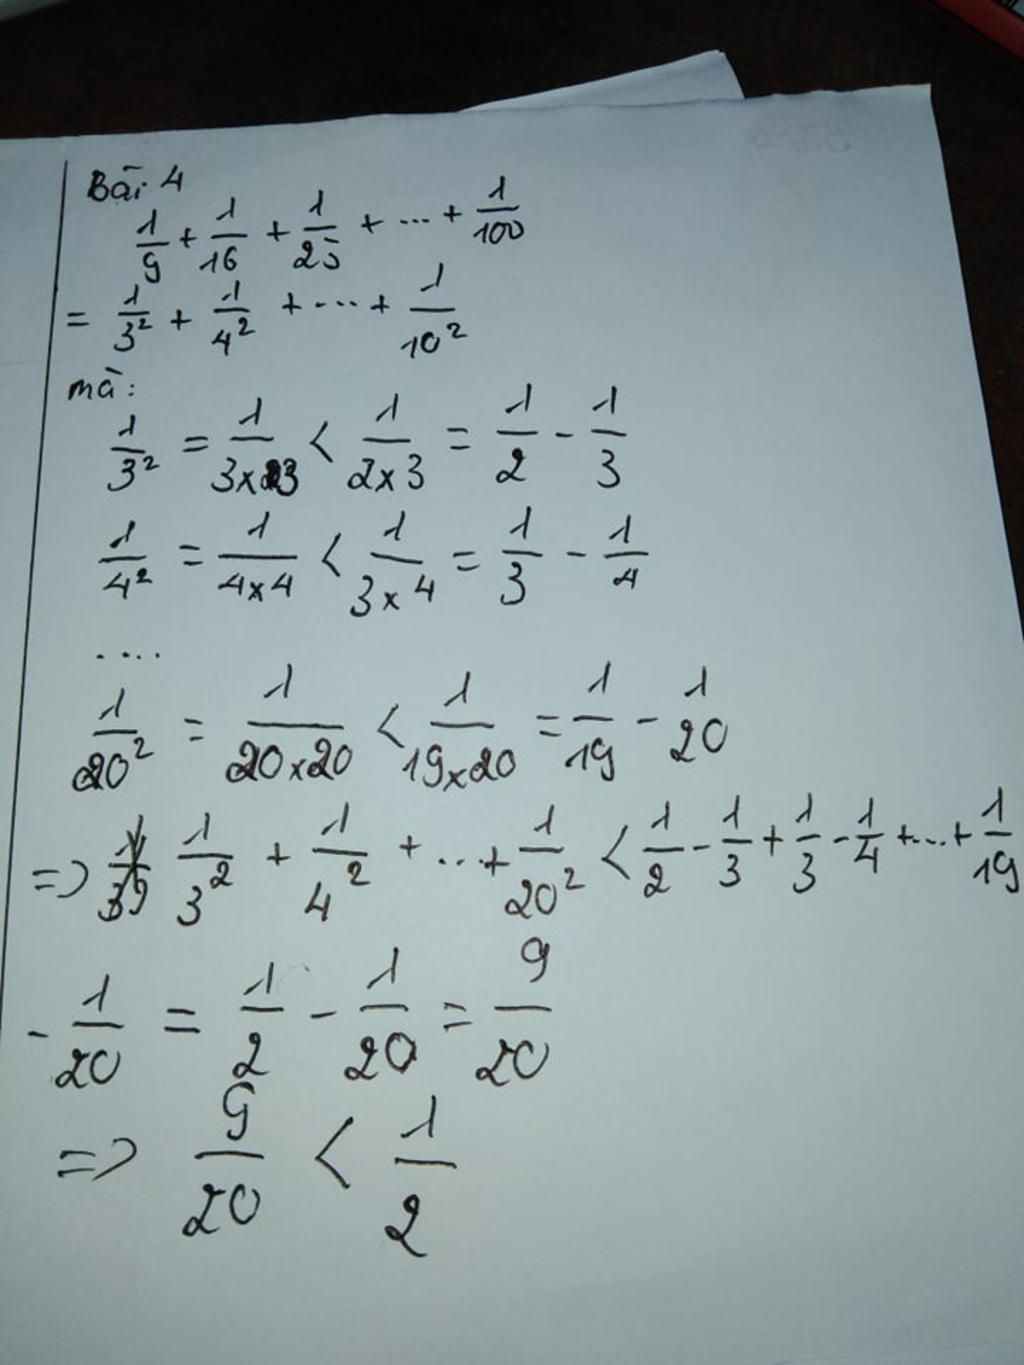 Bài 4
1/9 + 1/16 + 1/25 + ... + 1/100
= 1/3² + 1/4² + ... + 1/10²
mà:
1/3² = 1/3×3 < 1/2×3 = 1/2 - 1/3
1/4² = 1/4×4 < 1/3×4 = 1/3 - 1/4
....
1/20² = 1/20×20 < 1/19×20 = 1/19 - 1/20
=> 1/3² + 1/4² + ... + 1/20² < 1/2 - 1/3 + 1/3 - 1/4 + ... + 1/19
- 1/20 = 1/2 - 1/20 = 9/20
=> 9/20 < 1/2